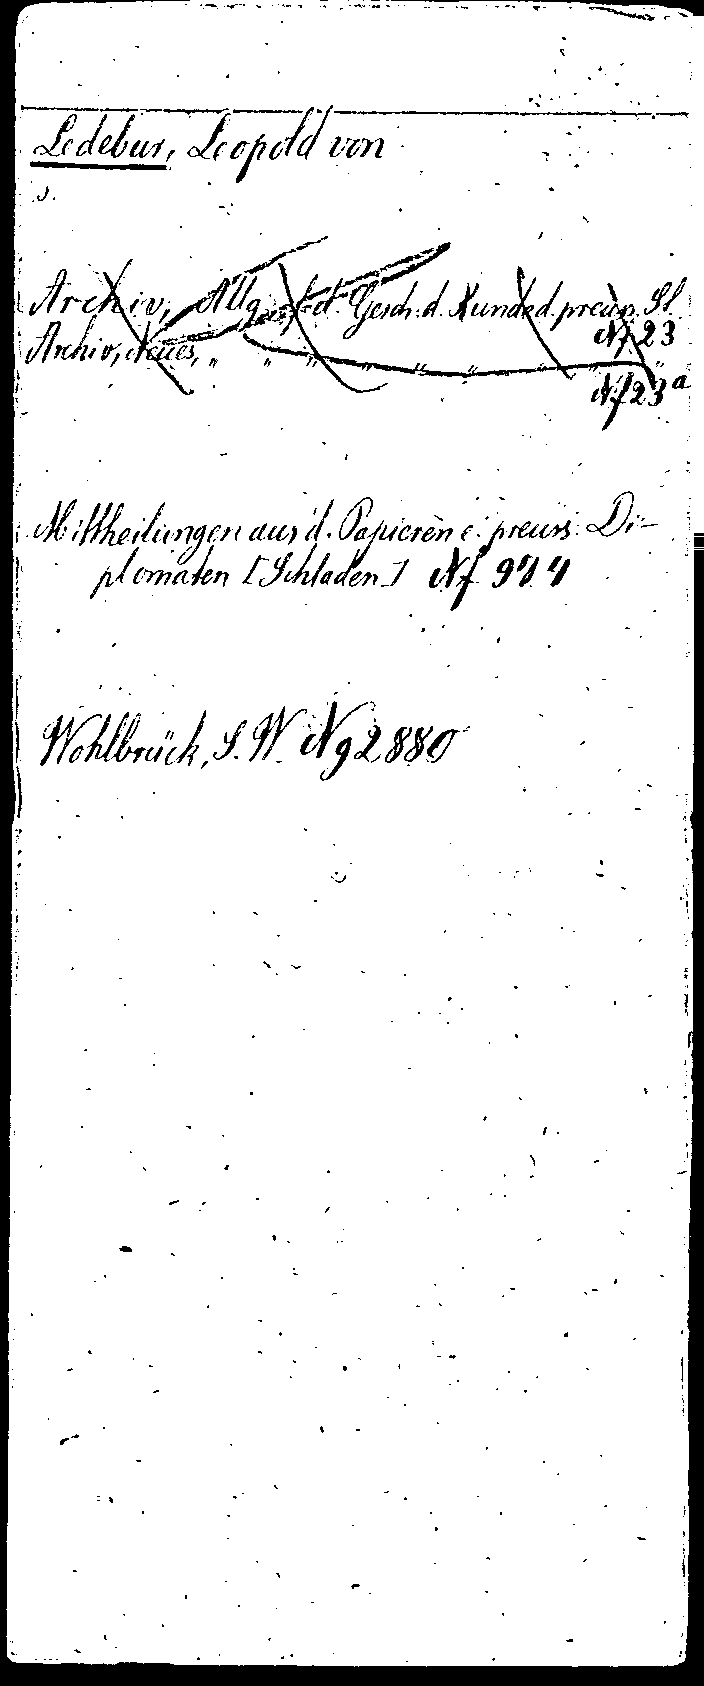 Ledebur, Leopold von
s.
Archiv, Allg. f. d. Gesch. d. Kunde d. preuss. St.
Nf 23
Archiv, Neues, " " " " " " " "
Nf 23 a
Mittheilungen aus d. Papieren e. preuss. Di-
plomaten [Schladen] Nf 974
Wohlbrück, S. W. Ng 2880